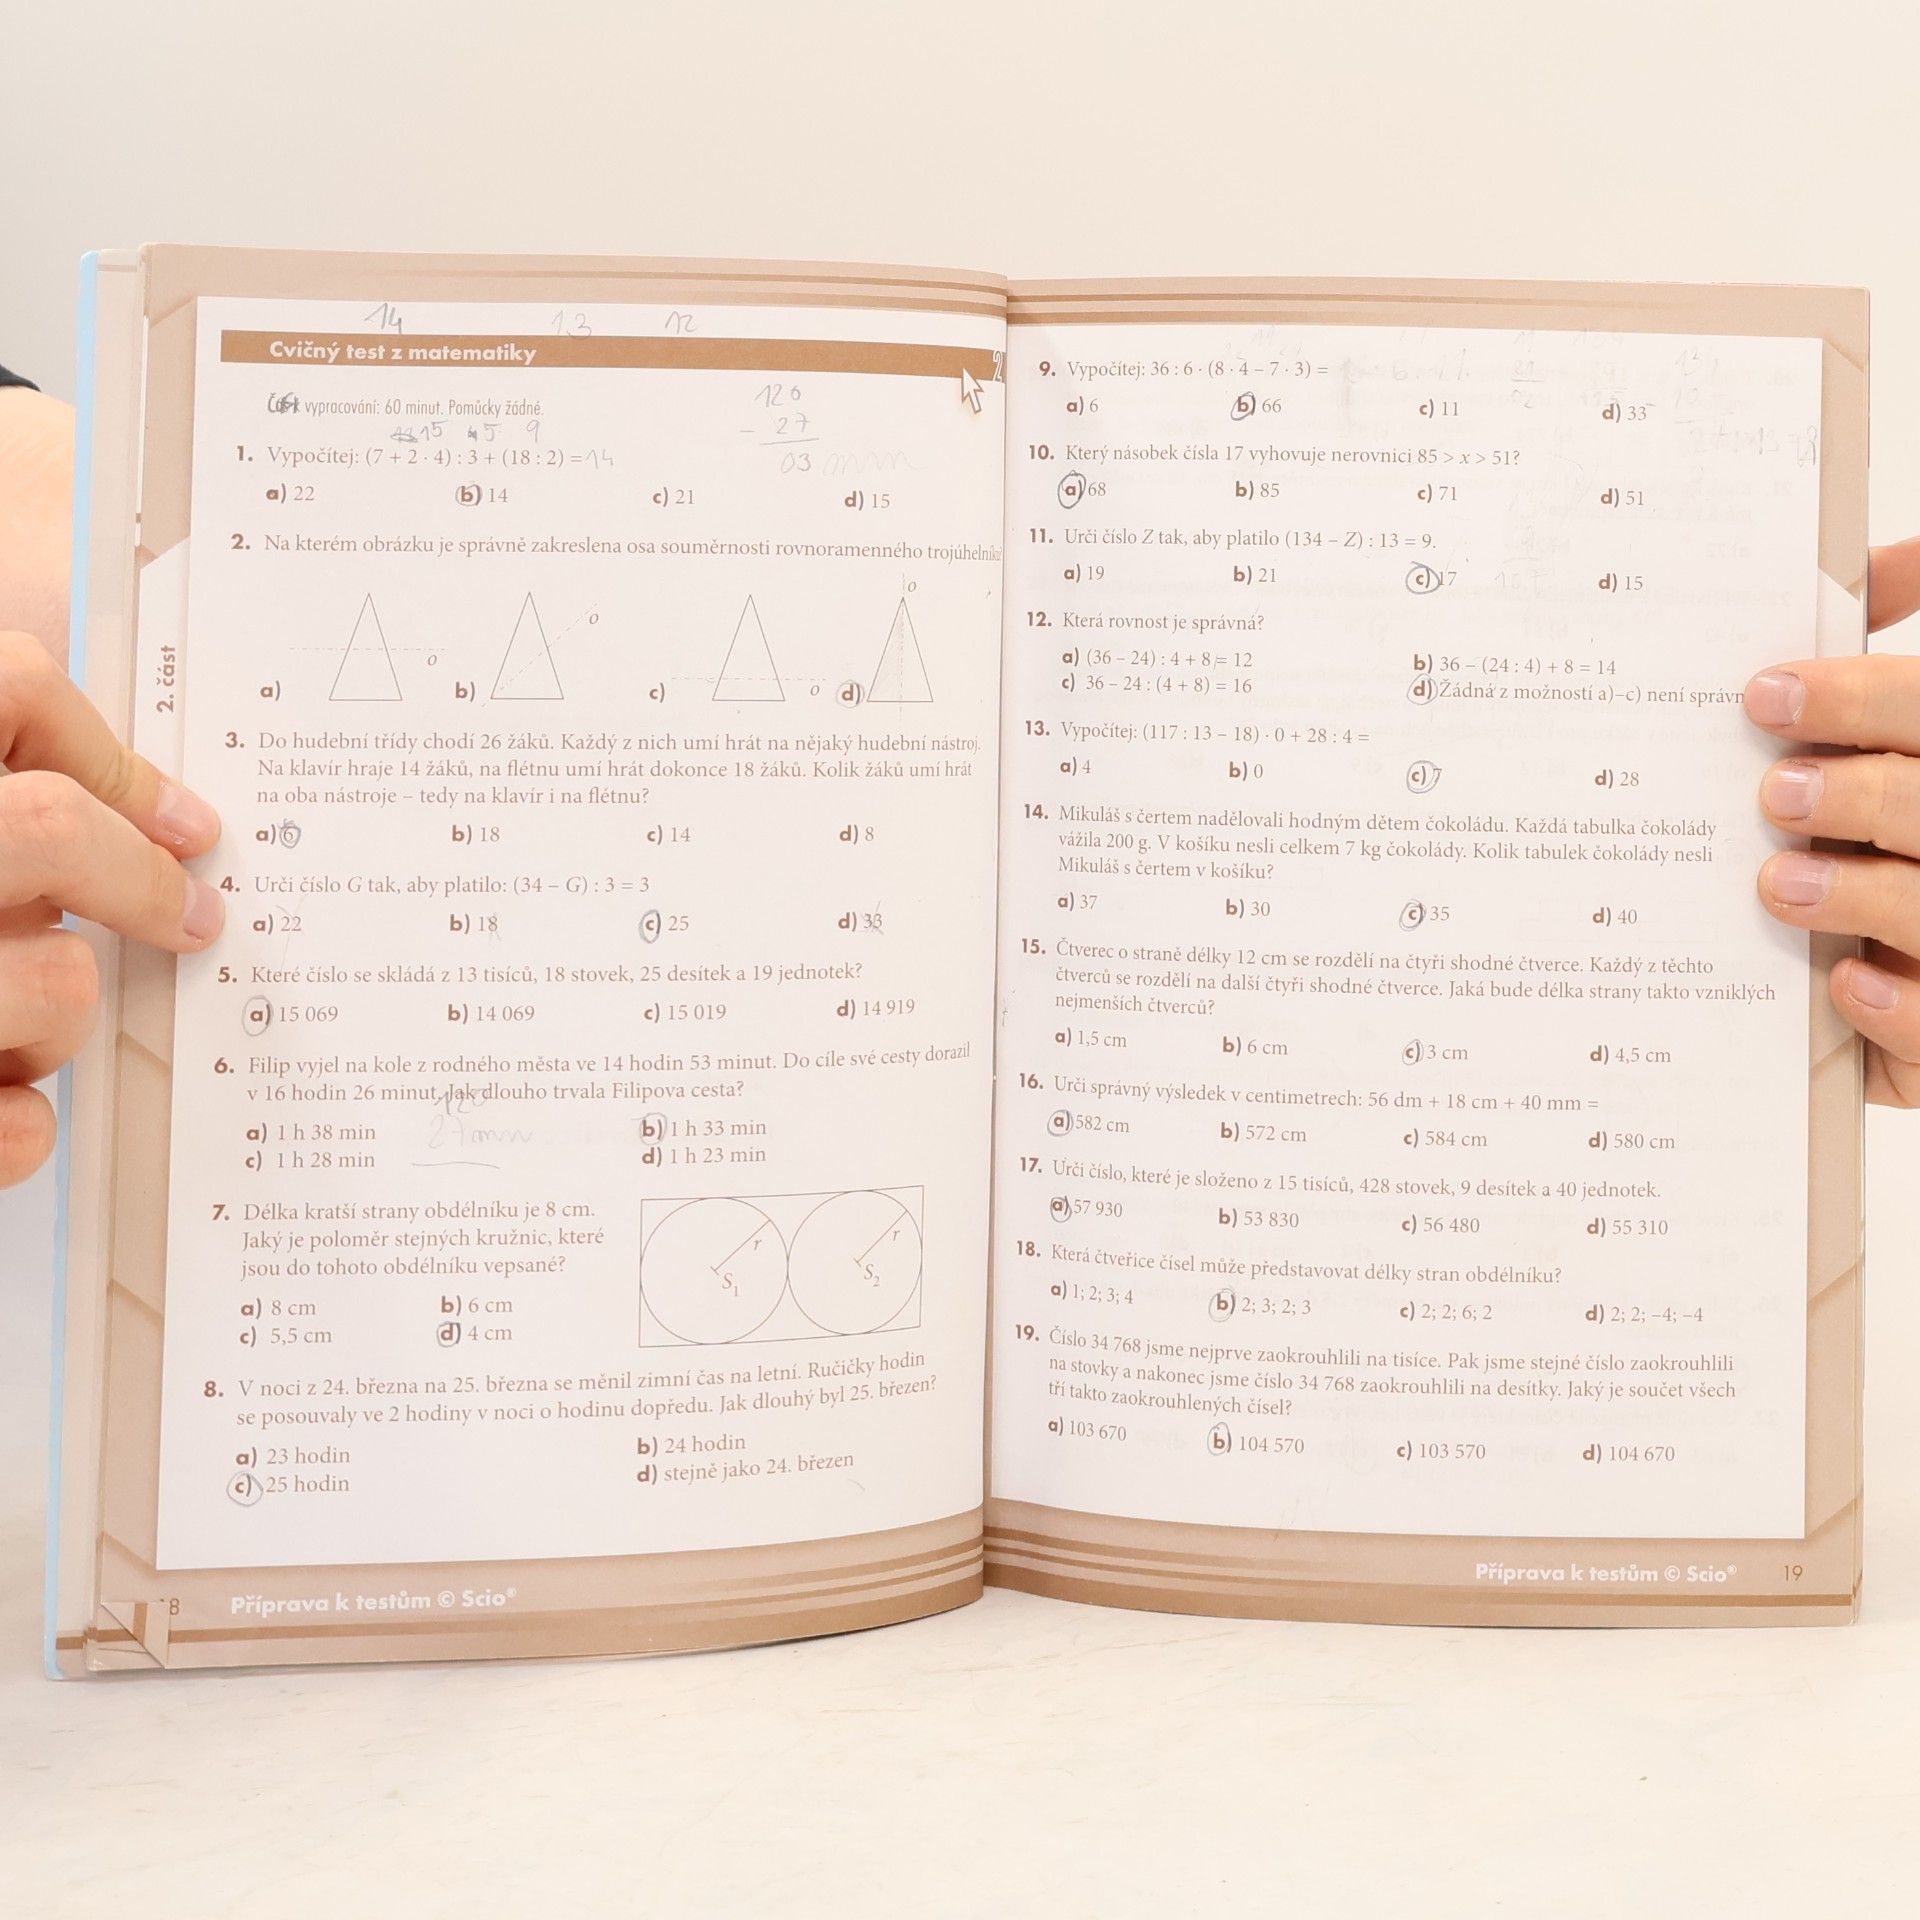 14 13 12
Cvičný test z matematiky
2
vypracování: 60 minut. Pomůcky žádné.
126
- 27
03 mm
15 5 9
1. Vypočítej: (7 + 2 · 4) : 3 + (18 : 2) = 14
a) 22 b) 14 c) 21 d) 15
2. Na kterém obrázku je správně zakreslena osa souměrnosti rovnoramenného trojúhelníku
o o o o
a) b) c) d)
2. část
3. Do hudební třídy chodí 26 žáků. Každý z nich umí hrát na nějaký hudební nástroj.
Na klavír hraje 14 žáků, na flétnu umí hrát dokonce 18 žáků. Kolik žáků umí hrát
na oba nástroje – tedy na klavír i na flétnu?
a) 6 b) 18 c) 14 d) 8
4. Urči číslo G tak, aby platilo: (34 – G) : 3 = 3
a) 22 b) 18 c) 25 d) 33
5. Které číslo se skládá z 13 tisíců, 18 stovek, 25 desítek a 19 jednotek?
a) 15 069 b) 14 069 c) 15 019 d) 14 919
6. Filip vyjel na kole z rodného města ve 14 hodin 53 minut. Do cíle své cesty dorazil
v 16 hodin 26 minut. Jak dlouho trvala Filipova cesta?
120
27mm
a) 1 h 38 min b) 1 h 33 min
c) 1 h 28 min d) 1 h 23 min
7. Délka kratší strany obdélníku je 8 cm.
Jaký je poloměr stejných kružnic, které
jsou do tohoto obdélníku vepsané?
a) 8 cm b) 6 cm
c) 5,5 cm d) 4 cm
r r
S1 S2
8. V noci z 24. března na 25. března se měnil zimní čas na letní. Ručičky hodin
se posouvaly ve 2 hodiny v noci o hodinu dopředu. Jak dlouhý byl 25. březen?
a) 23 hodin b) 24 hodin
c) 25 hodin d) stejně jako 24. březen
8 Příprava k testům © Scio®
9. Vypočítej: 36 : 6 · (8 · 4 – 7 · 3) =
a) 6 b) 66 c) 11 d) 33
10. Který násobek čísla 17 vyhovuje nerovnici 85 > x > 51?
a) 68 b) 85 c) 71 d) 51
11. Urči číslo Z tak, aby platilo (134 – Z) : 13 = 9.
a) 19 b) 21 c) 17 d) 15
12. Která rovnost je správná?
a) (36 – 24) : 4 + 8 = 12 b) 36 – (24 : 4) + 8 = 14
c) 36 – 24 : (4 + 8) = 16 d) Žádná z možností a)–c) není správn
13. Vypočítej: (117 : 13 – 18) · 0 + 28 : 4 =
a) 4 b) 0 c) 7 d) 28
14. Mikuláš s čertem nadělovali hodným dětem čokoládu. Každá tabulka čokolády
vážila 200 g. V košíku nesli celkem 7 kg čokolády. Kolik tabulek čokolády nesli
Mikuláš s čertem v košíku?
a) 37 b) 30 c) 35 d) 40
15. Čtverec o straně délky 12 cm se rozdělí na čtyři shodné čtverce. Každý z těchto
čtverců se rozdělí na další čtyři shodné čtverce. Jaká bude délka strany takto vzniklých
nejmenších čtverců?
a) 1,5 cm b) 6 cm c) 3 cm d) 4,5 cm
16. Urči správný výsledek v centimetrech: 56 dm + 18 cm + 40 mm =
a) 582 cm b) 572 cm c) 584 cm d) 580 cm
17. Urči číslo, které je složeno z 15 tisíců, 428 stovek, 9 desítek a 40 jednotek.
a) 57 930 b) 53 830 c) 56 480 d) 55 310
18. Která čtveřice čísel může představovat délky stran obdélníku?
a) 1; 2; 3; 4 b) 2; 3; 2; 3 c) 2; 2; 6; 2 d) 2; 2; –4; –4
19. Číslo 34 768 jsme nejprve zaokrouhlili na tisíce. Pak jsme stejné číslo zaokrouhlili
na stovky a nakonec jsme číslo 34 768 zaokrouhlili na desítky. Jaký je součet všech
tří takto zaokrouhlených čísel?
a) 103 670 b) 104 570 c) 103 570 d) 104 670
Příprava k testům © Scio® 19